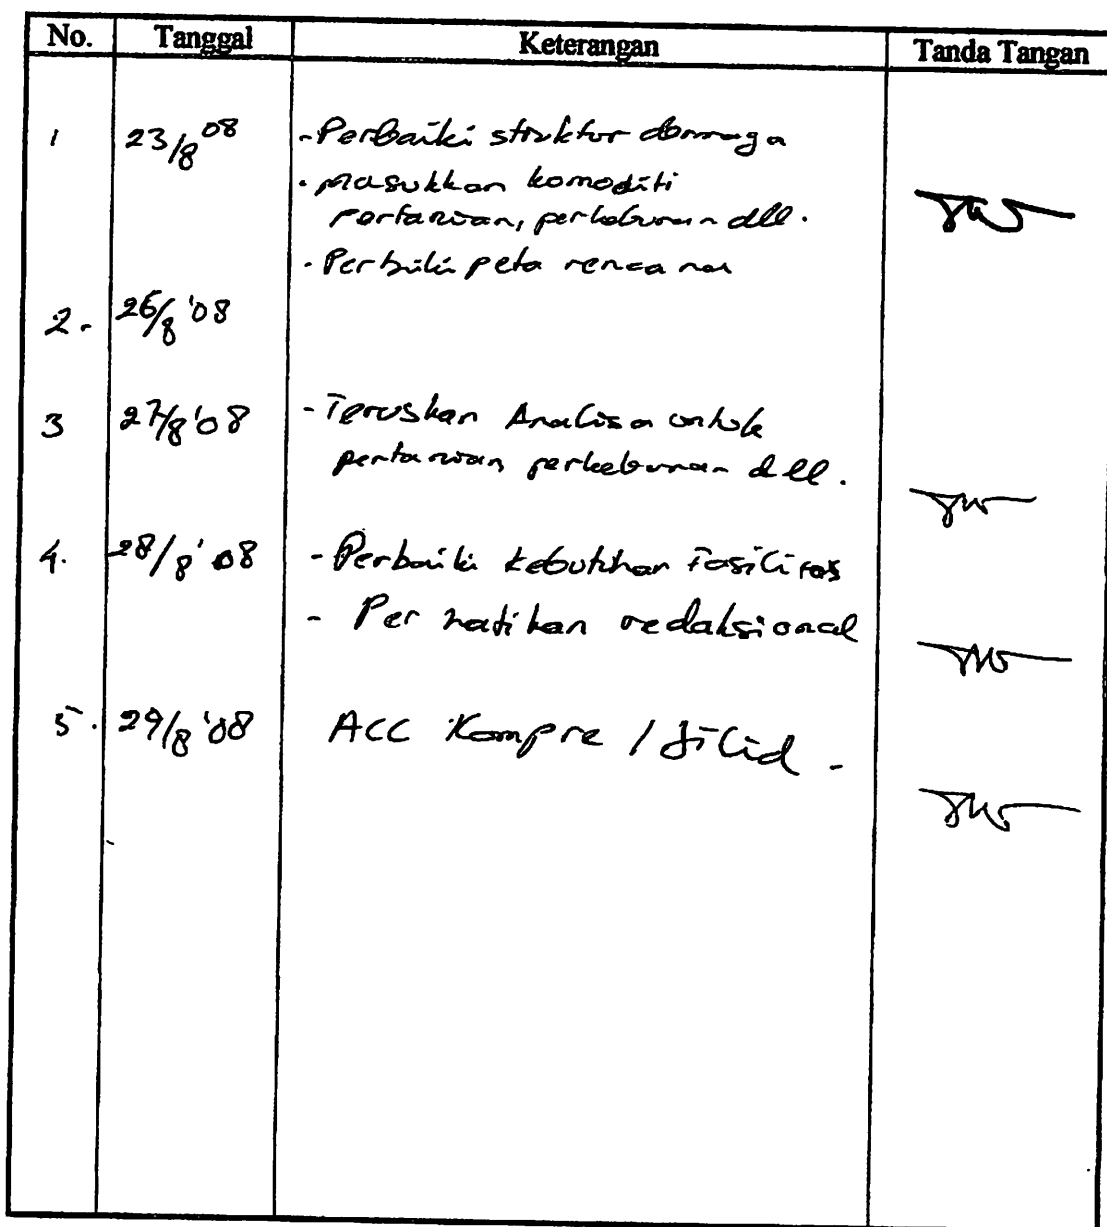 No. Tanggal Keterangan Tanda Tangan
1 23/8 08 - Perbaiki struktur dermaga
- Masukkan komoditi
pertanian, perkebunan dll.
- Perbaiki peta rencana
2. 26/8 '08
3 27/8 '08 - Teruskan Analisa untuk
pertanian, perkebunan dll.
4. 28/8 '08 - Perbaiki kebutuhan Fasilitas
- Perhatikan redaksional
5. 29/8 '08 ACC Kompre / Jilid -